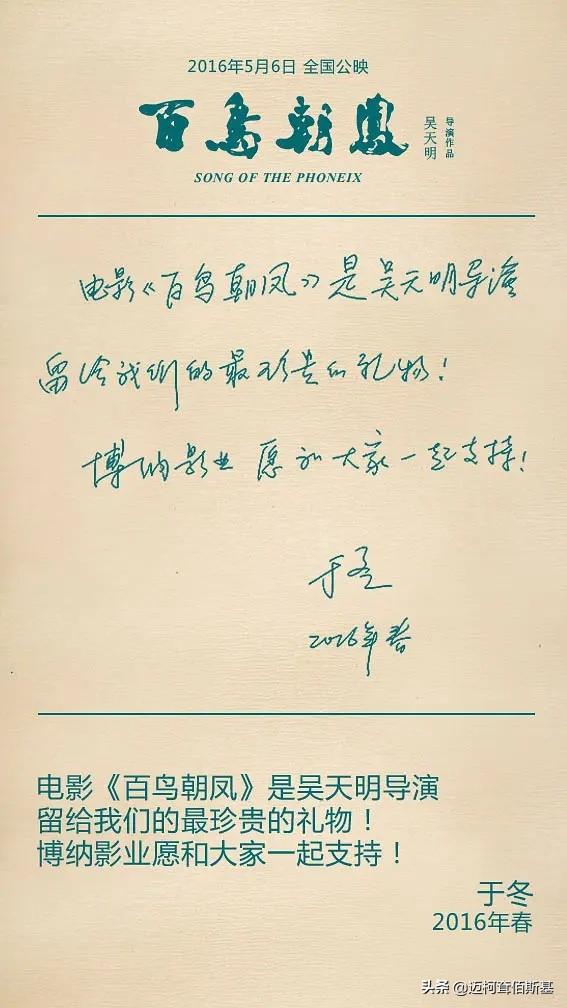 2016年5月6日 全国公映
百鸟朝鳳
吴天明
导演作品
SONG OF THE PHONEIX
电影《百鸟朝凤》是吴天明导演
留给我们的最珍贵的礼物！
博纳影业愿和大家一起支持！
于冬
2016年春
电影《百鸟朝凤》是吴天明导演
留给我们的最珍贵的礼物！
博纳影业愿和大家一起支持！
于冬
2016年春
头条 @迈柯耷佰斯基